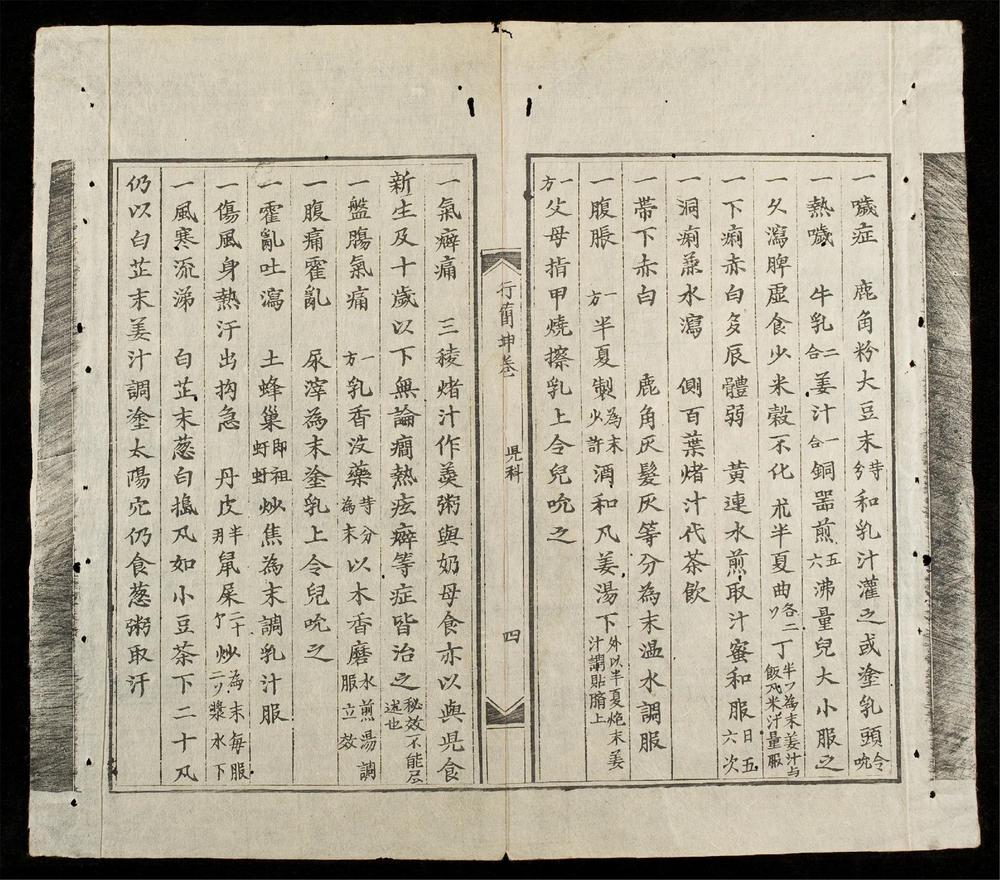 一噦症　鹿角粉大豆末等分和乳汁灌之或塗乳頭令吮
一熱噦　牛乳二合姜汁一合銅器煎五六沸量兒大小服之
一久瀉脾虛食少米穀不化　朮半夏曲各二丁半ツ為末姜汁与飯丸米汁量服
一下痢赤白多辰體弱　黃連水煎取汁蜜和服日五六次
一洞痢兼水瀉　側百葉煮汁代茶飲
一帶下赤白　鹿角灰髮灰等分為末温水調服
一腹脹　一方半夏製為末少許酒和丸姜湯下外以半夏炮末姜汁調貼臍上
一方父母指甲燒擦乳上令兒吮之
行簡坤卷　児科　四
一氣癖痛　三稜煮汁作羹粥與奶母食亦以與児食
新生及十歲以下無論癇熱痃癖等症皆治之秘效不能尽述也
一盤腸氣痛　一方乳香没藥等分為末以木香磨水煎湯調服立效
一腹痛霍亂　尿滓為末塗乳上令兒吮之
一霍亂吐瀉　土蜂巢即祖蚜蚜炒焦為末調乳汁服
一傷風身熱汗出拘急　丹皮半刄鼠屎二十个炒為末每服二ツ漿水下
一風寒流涕　白芷末葱白搗丸如小豆茶下二十丸
仍以白芷末姜汁調塗太陽穴仍食葱粥取汗